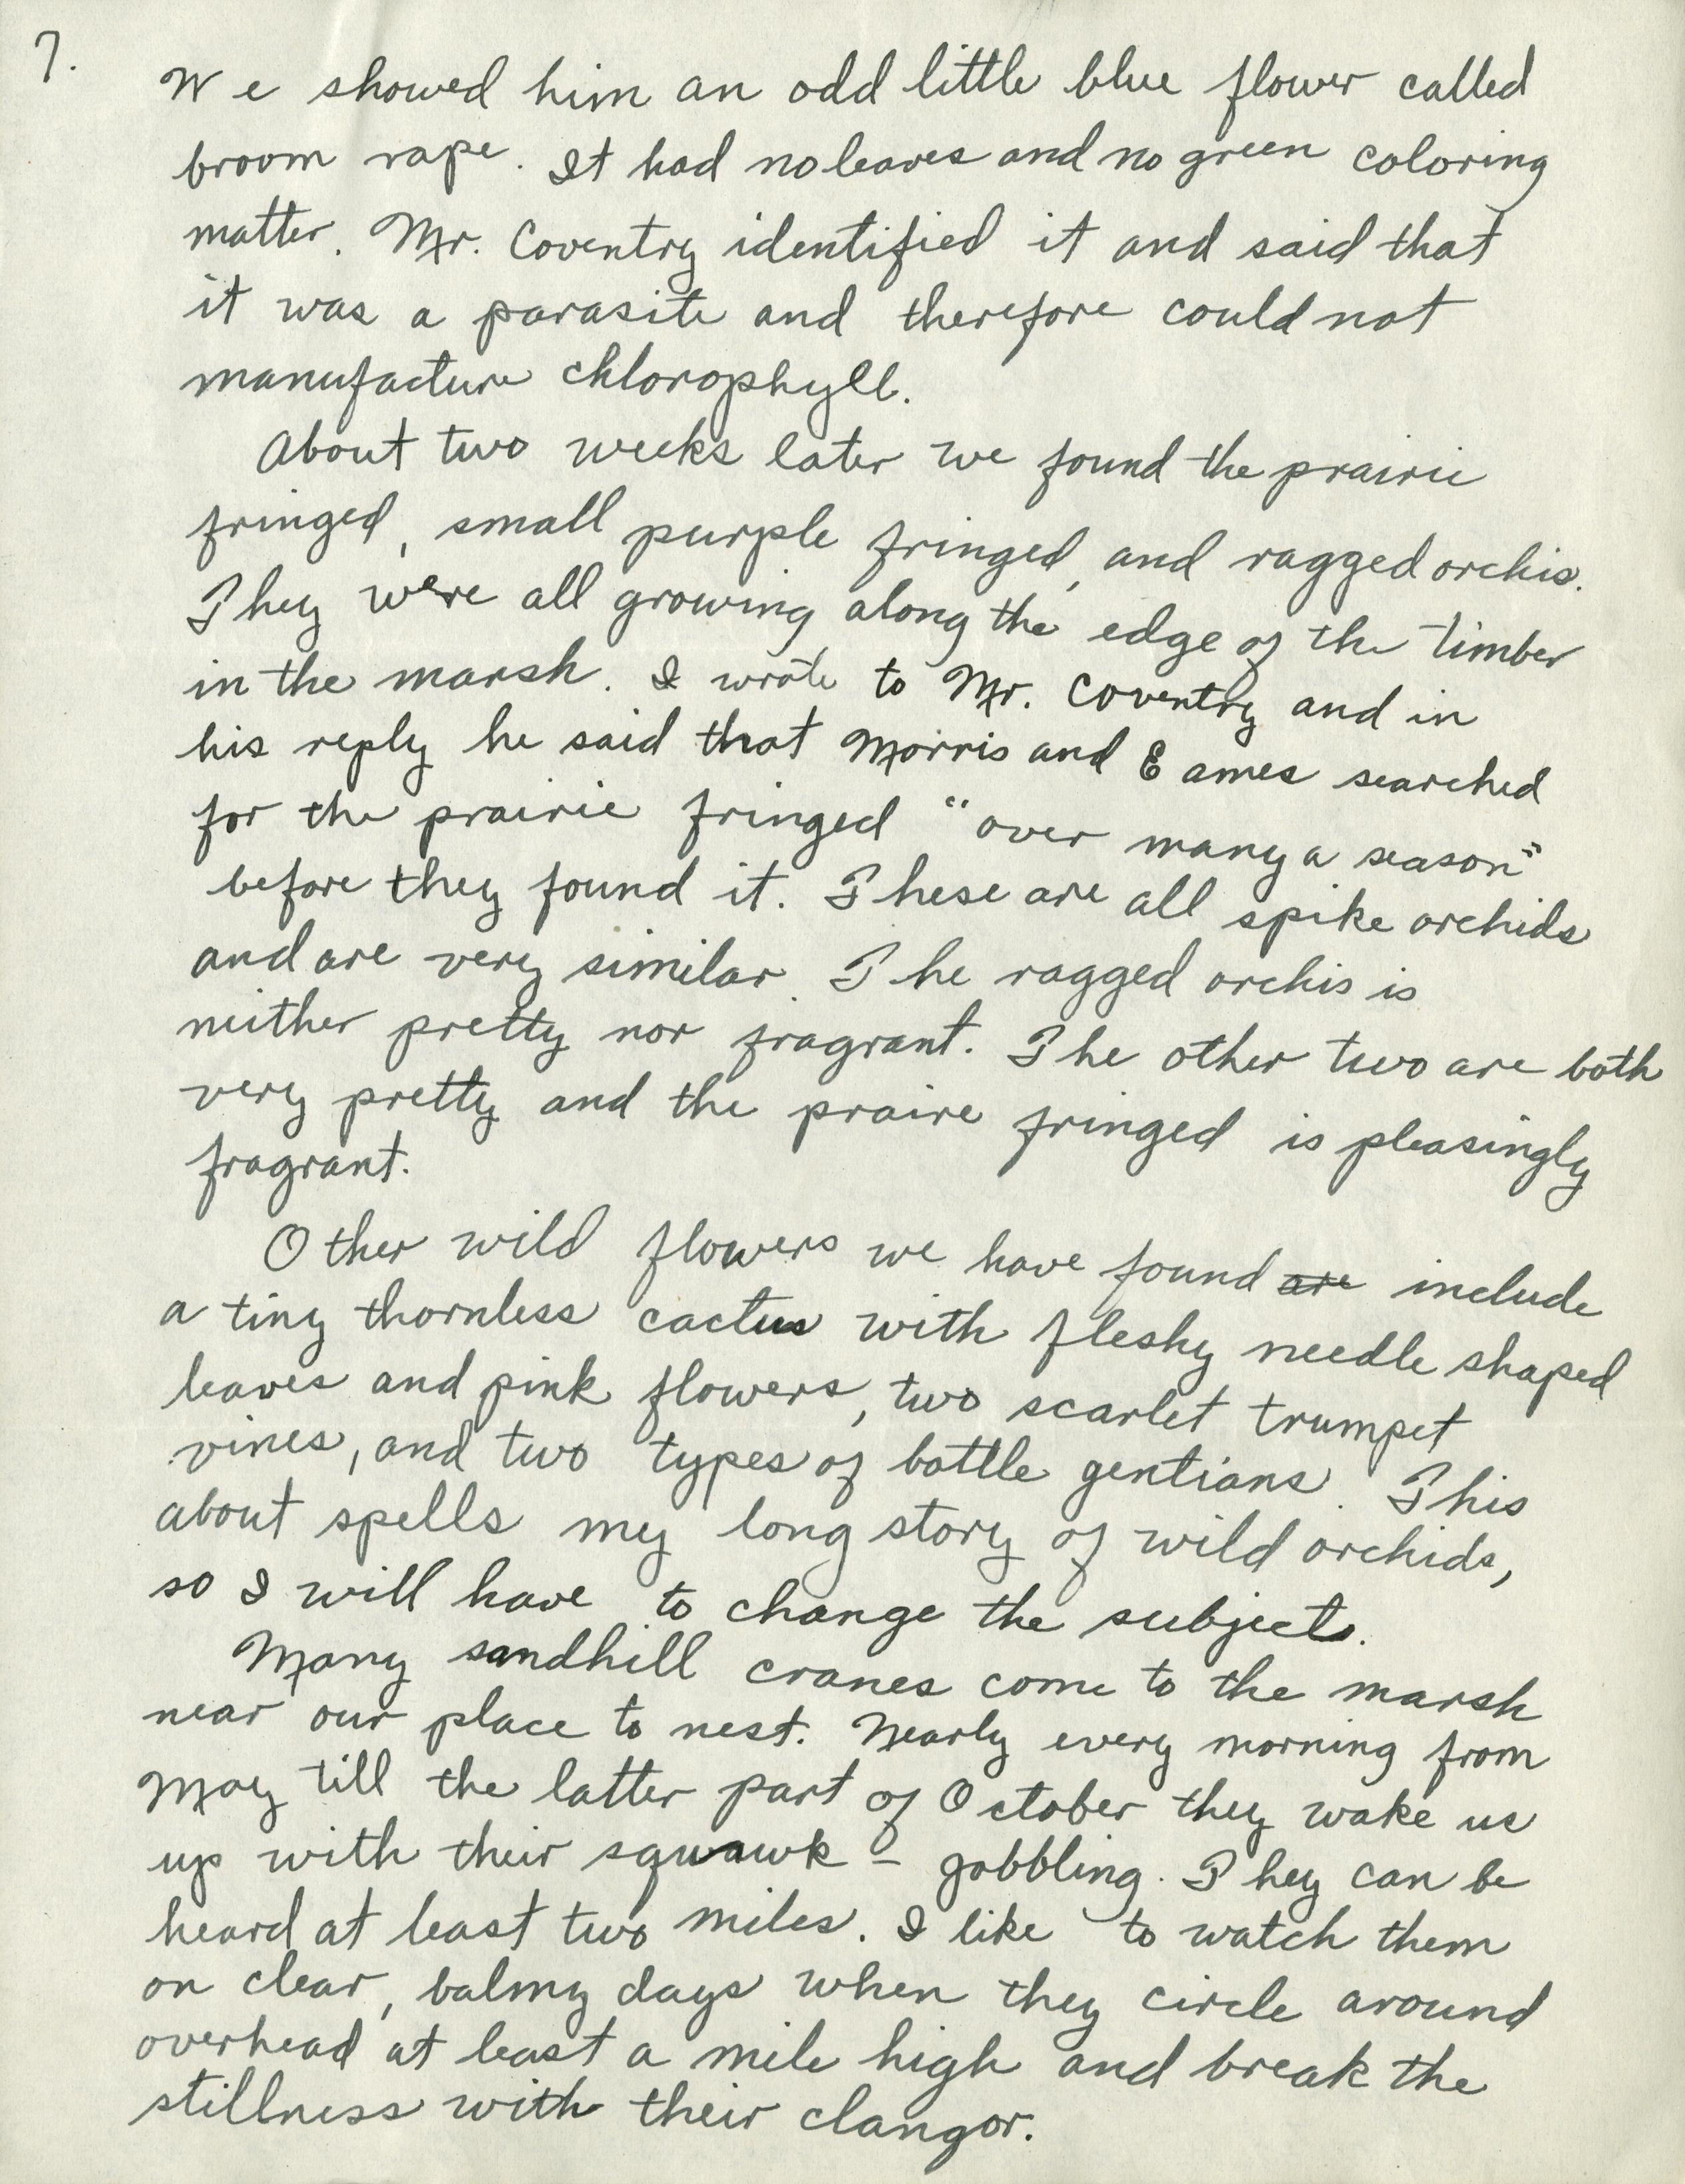 7.
We showed him an odd little blue flower called
broom rape. It had no leaves and no green coloring
matter. Mr. Coventry identified it and said that
it was a parasite and therefore could not
manufacture chlorophyll.
About two weeks later we found the prairie
fringed, small purple fringed, and ragged orchis.
They were all growing along the edge of the timber
in the marsh. I wrote to Mr. Coventry and in
his reply he said that Morris and Eames searched
for the prairie fringed "over many a season"
before they found it. These are all spike orchids
and are very similar. The ragged orchis is
neither pretty nor fragrant. The other two are both
very pretty and the praire fringed is pleasingly
fragrant.
Other wild flowers we have found are include
a tiny thornless cactus with fleshy needle shaped
leaves and pink flowers, two scarlet trumpet
vines, and two types of bottle gentians. This
about spells my long story of wild orchids,
so I will have to change the subject.
Many sandhill cranes come to the marsh
near our place to nest. Nearly every morning from
May till the latter part of October they wake us
up with their squawk - gobbling. They can be
heard at least two miles. I like to watch them
on clear, balmy days when they circle around
overhead at least a mile high and break the
stillness with their clangor.